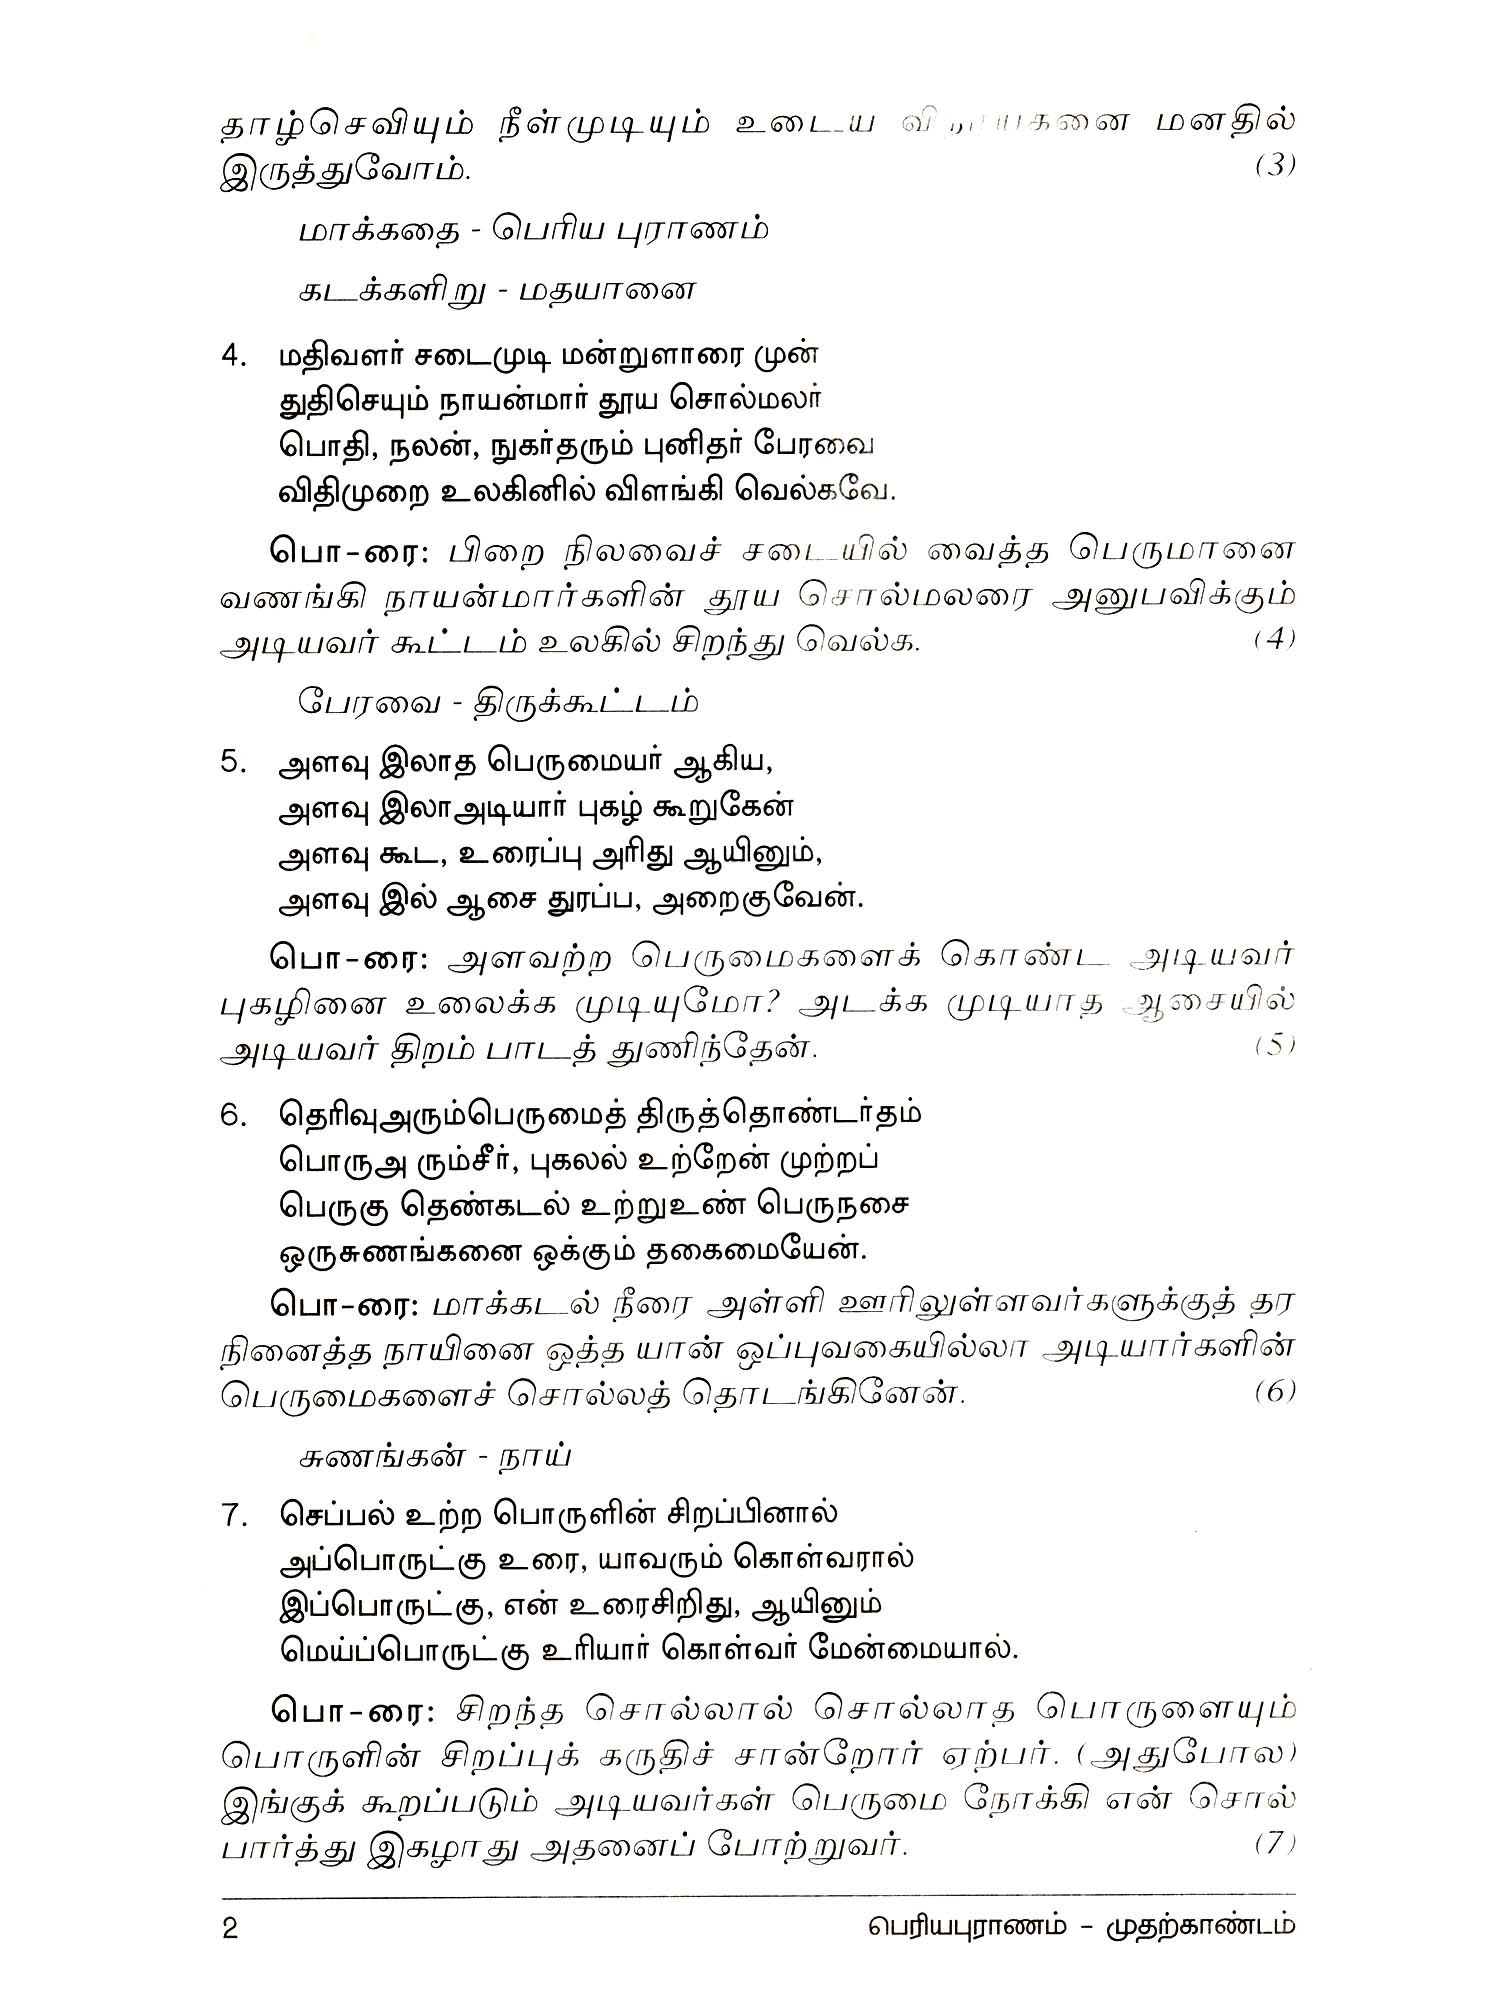 தாழ்செவியும் நீள்முடியும் உடைய மனதில்
இருத்துவோம். (3)
மாக்கதை - பெரிய புராணம்
கடக்களிறு - மதயானை
4. மதிவளர் சடைமுடி மன்றுளாரை முன்
துதிசெயும் நாயன்மார் தூய சொல்மலர்
பொதி, நலன், நுகர்தரும் புனிதர் பேரவை
விதிமுறை உலகினில் விளங்கி வெல்கவே.
பொ-ரை: பிறை நிலவைச் சடையில் வைத்த பெருமானை
வணங்கி நாயன்மார்களின் தூய சொல்மலரை அனுபவிக்கும்
அடியவர் கூட்டம் உலகில் சிறந்து வெல்க. (4)
பேரவை - திருக்கூட்டம்
5. அளவு இலாத பெருமையர் ஆகிய,
அளவு இலாஅடியார் புகழ் கூறுகேன்
அளவு கூட, உரைப்பு அரிது ஆயினும்,
அளவு இல் ஆசை துரப்ப, அறைகுவேன்.
பொ-ரை: அளவற்ற பெருமைகளைக் கொண்ட அடியவர்
புகழினை உலைக்க முடியுமோ? அடக்க முடியாத ஆசையில்
அடியவர் திறம் பாடத் துணிந்தேன். (5)
6. தெரிவுஅரும்பெருமைத் திருத்தொண்டர்தம்
பொருஅ ரும்சீர், புகலல் உற்றேன் முற்றப்
பெருகு தெண்கடல் உற்றுஉண் பெருநசை
ஒருசுணங்கனை ஒக்கும் தகைமையேன்.
பொ-ரை: மாக்கடல் நீரை அள்ளி ஊரிலுள்ளவர்களுக்குத் தர
நினைத்த நாயினை ஒத்த யான் ஒப்புவகையில்லா அடியார்களின்
பெருமைகளைச் சொல்லத் தொடங்கினேன். (6)
சுணங்கன் - நாய்
7. செப்பல் உற்ற பொருளின் சிறப்பினால்
அப்பொருட்கு உரை, யாவரும் கொள்வரால்
இப்பொருட்கு, என் உரைசிறிது, ஆயினும்
மெய்ப்பொருட்கு உரியார் கொள்வர் மேன்மையால்.
பொ-ரை: சிறந்த சொல்லால் சொல்லாத பொருளையும்
பொருளின் சிறப்புக் கருதிச் சான்றோர் ஏற்பர். (அதுபோல)
இங்குக் கூறப்படும் அடியவர்கள் பெருமை நோக்கி என் சொல்
பார்த்து இகழாது அதனைப் போற்றுவர். (7)
2 பெரியபுராணம் - முதற்காண்டம்